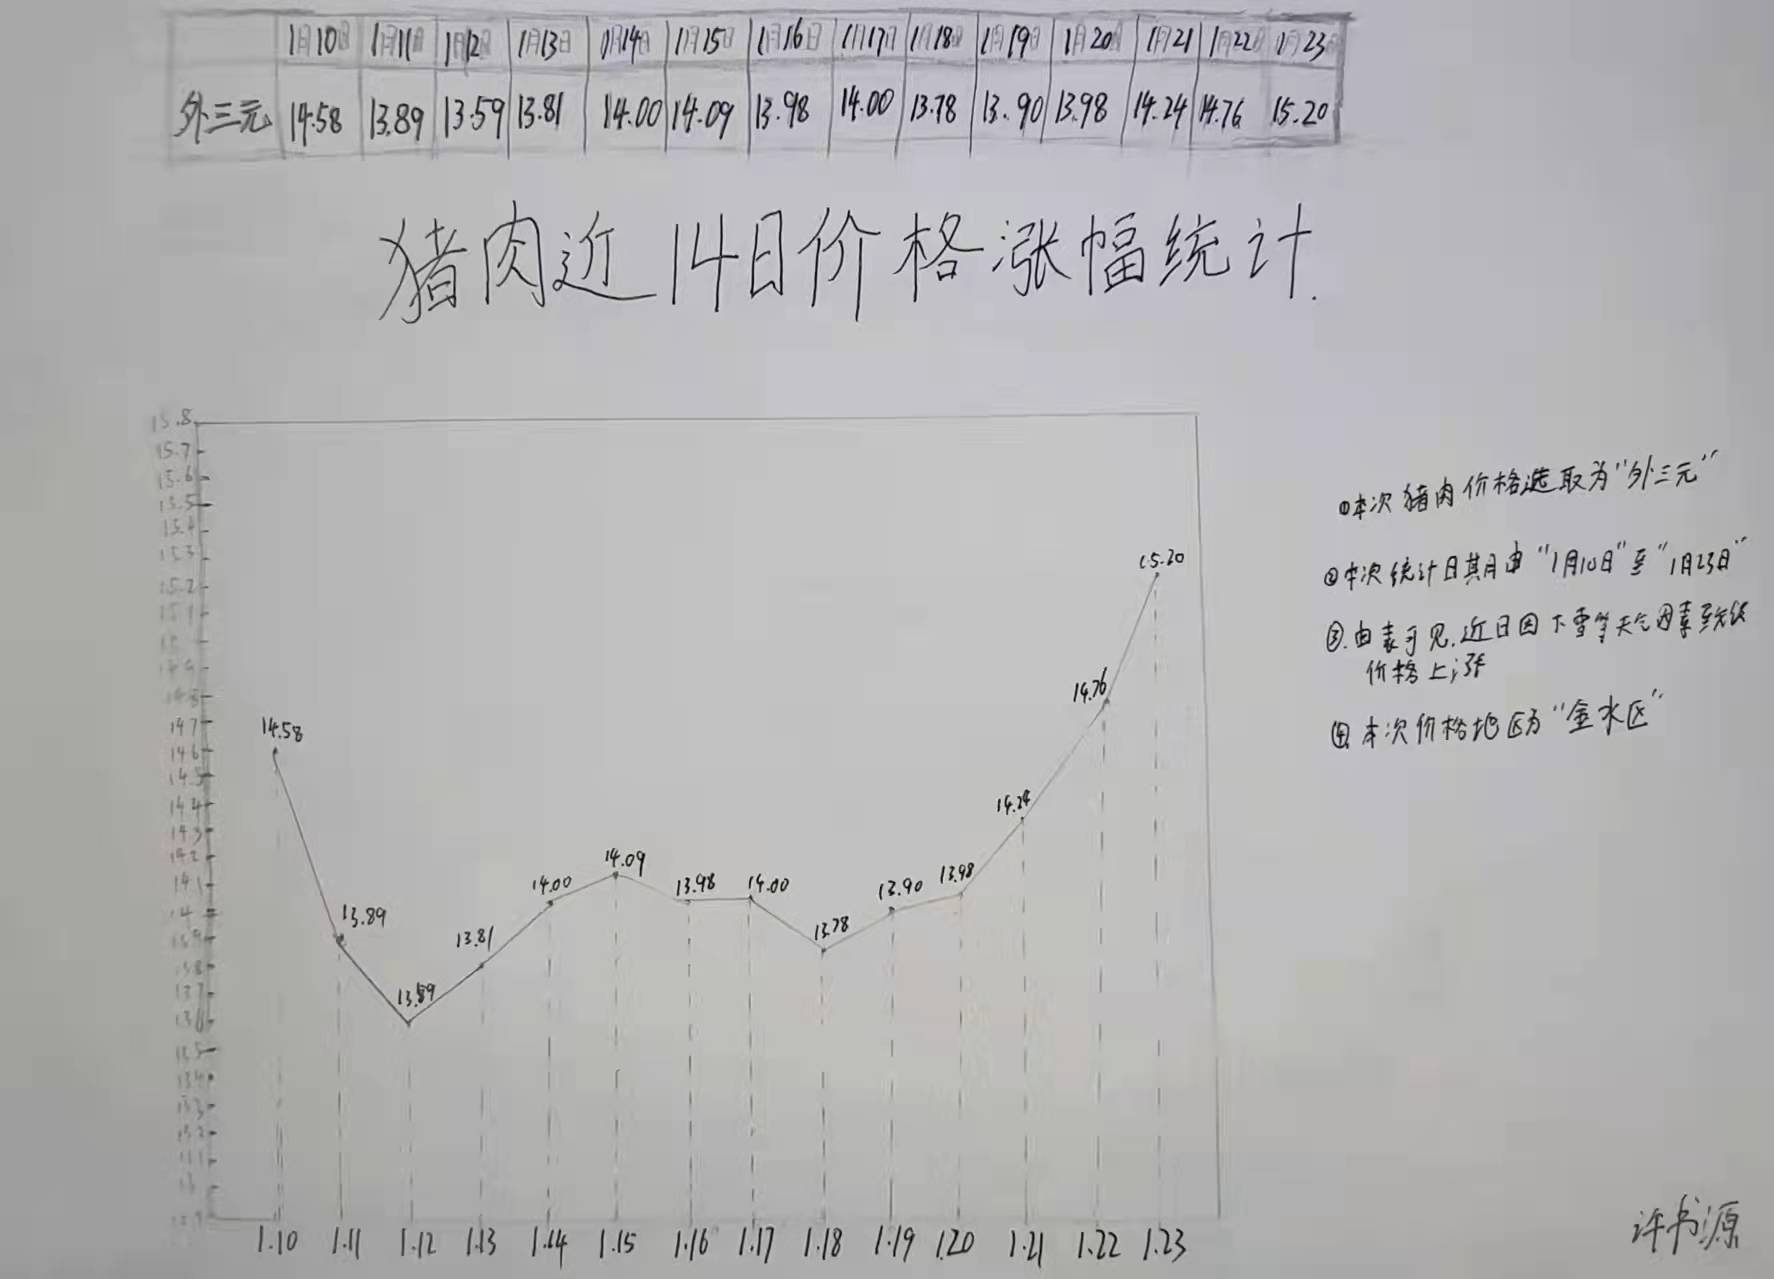 1月10日 1月11日 1月12日 1月13日 1月14日 1月15日 1月16日 1月17日 1月18日 1月19日 1月20日 1月21 1月22日 1月23日
外三元 14.58 13.89 13.59 13.81 14.00 14.09 13.98 14.00 13.78 13.90 13.98 14.24 14.76 15.20
猪肉近14日价格涨幅统计.
15.8
15.7
15.6
15.5
15.4
15.3
15.2
15.1
15
14.9
14.8
14.7
14.6
14.5
14.4
14.3
14.2
14.1
14
13.9
13.8
13.7
13.6
13.5
13.4
13.3
13.2
13.1
13
14.58
13.89
13.59
13.81
14.00
14.09
13.98
14.00
13.78
13.90
13.98
14.24
14.76
15.20
1.10 1.11 1.12 1.13 1.14 1.15 1.16 1.17 1.18 1.19 1.20 1.21 1.22 1.23
①本次猪肉价格选取为“外三元”
②本次统计日期由“1月10日”至“1月23日”
③.由表可见.近日因下雪等天气因素致使
价格上涨
④本次价格地区为“金水区”
许书源